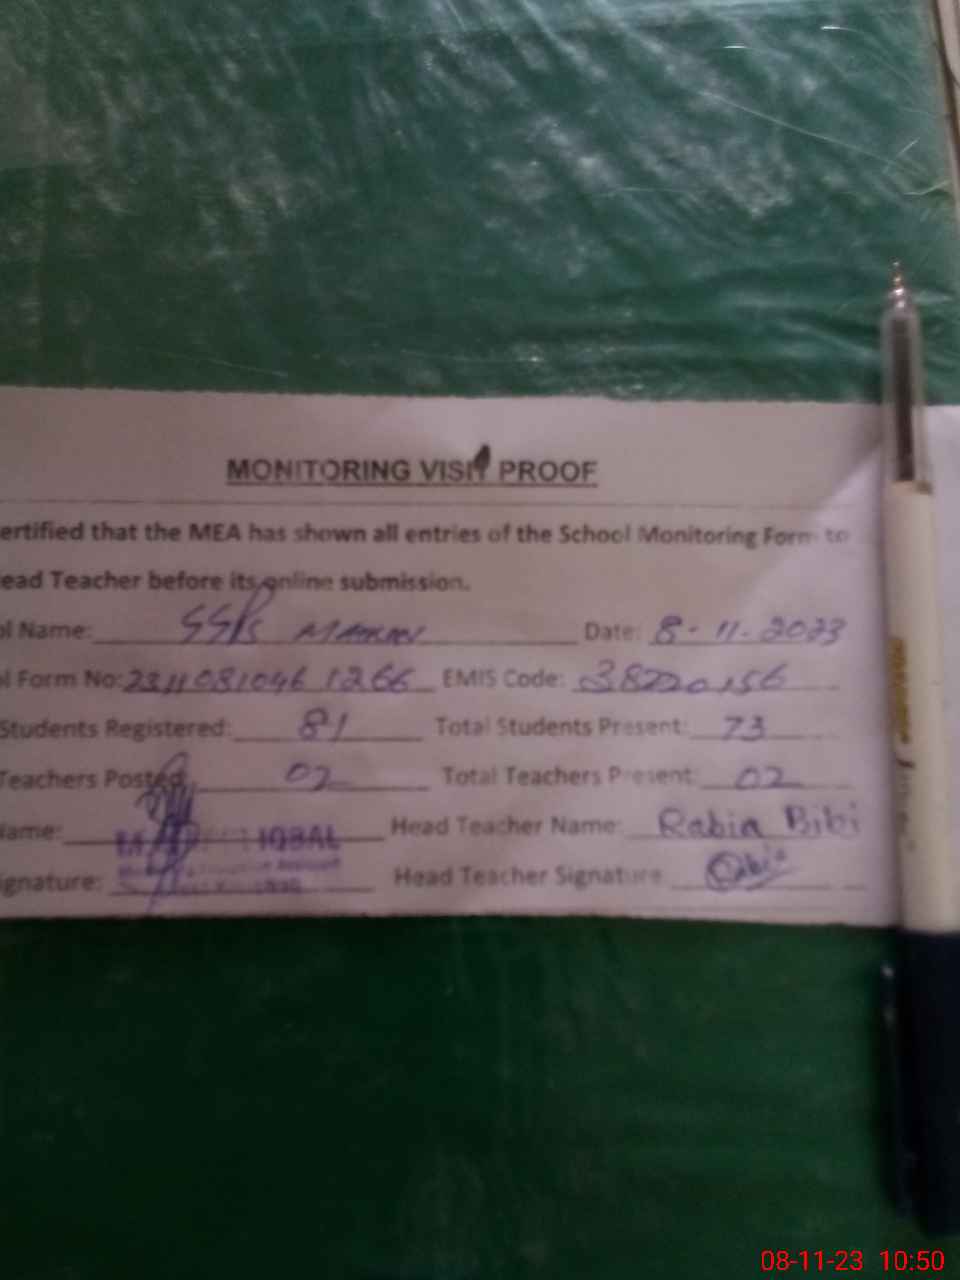 MONITORING VISIT PROOF
ertified that the MEA has shown all entries of the School Monitoring Form to
ead Teacher before its online submission.
ol Name: SSPS Date: 8-11-2023
l Form No: 23110810461266 EMIS Code: 38220156
Students Registered: 81 Total Students Present: 73
Teachers Posted: 02 Total Teachers Present: 02
ame: IQBAL Head Teacher Name: Rabia Bibi
ignature: Head Teacher Signature
08-11-23 10:50